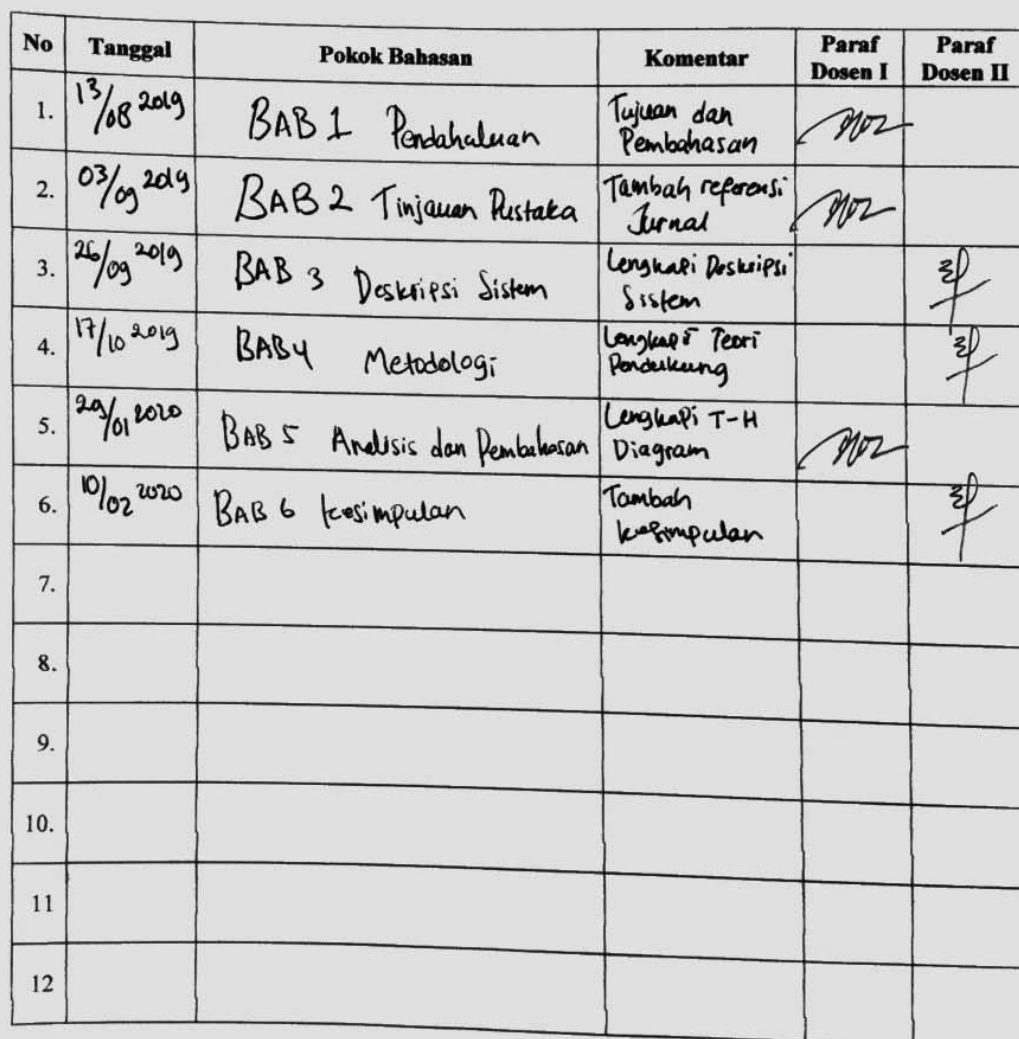 No Tanggal Pokok Bahasan Komentar Paraf Dosen I Paraf Dosen II
1. 13/08 2019 BAB 1 Pendahuluan Tujuan dan
Pembahasan
2. 03/09 2019 BAB 2 Tinjauan Pustaka Tambah referensi
Jurnal
3. 26/09 2019 BAB 3 Deskripsi Sistem Lengkapi Deskripsi
Sistem
4. 17/10 2019 BAB 4 Metodologi Lengkapi Teori
Pendukung
5. 29/01 2020 BAB 5 Analisis dan Pembahasan Lengkapi T-H
Diagram
6. 10/02 2020 BAB 6 Kesimpulan Tambah
Kesimpulan
7.
8.
9.
10.
11
12